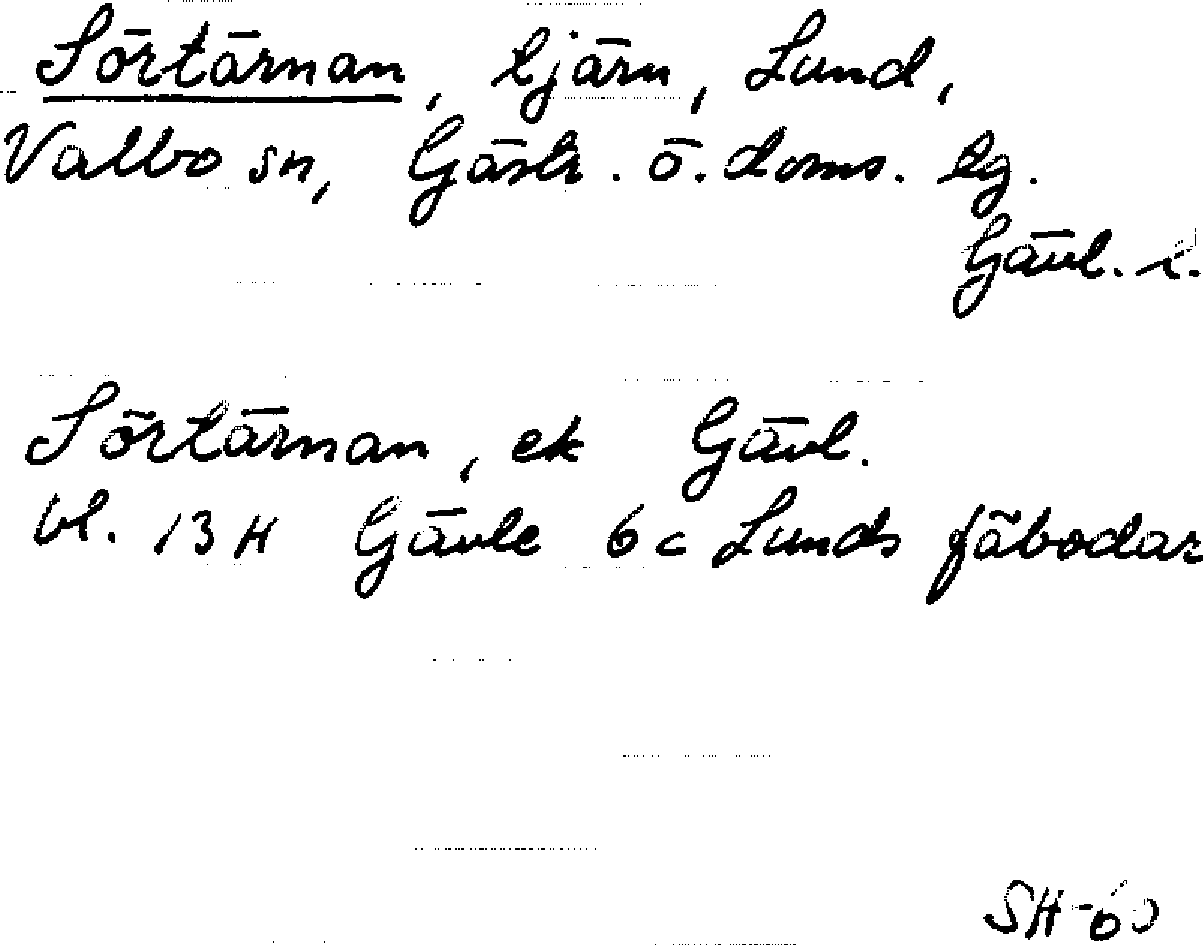 Sörtärnan, tjärn, Lund,
Valbo sn, Gästr. ö. doms. lg.
Gävl. l.
Sörtärnan, ek Gävl.
bl. 13H Gävle 6c Lunds fäbodar